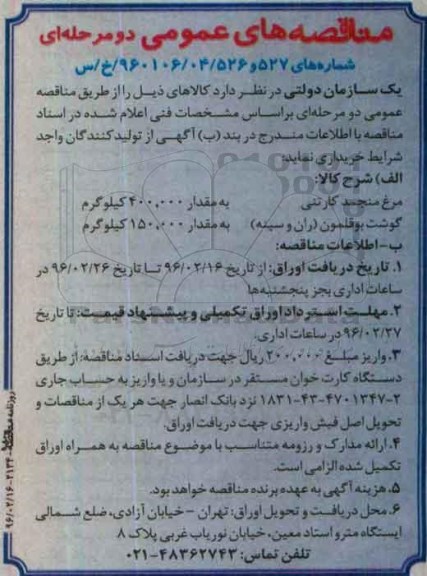 مناقصه‌های عمومی دو مرحله‌ای
شماره‌های ۵۲۷ و ۹۶۰۱۰۶/۰۴/۵۲۶/خ/س
یک سازمان دولتی در نظر دارد کالاهای ذیل را از طریق مناقصه
عمومی دو مرحله‌ای براساس مشخصات فنی اعلام شده در اسناد
مناقصه با اطلاعات مندرج در بند (ب) آگهی از تولیدکنندگان واجد
شرایط خریداری نماید:
الف) شرح کالا:
مرغ منجمد کارتنی به مقدار ۴۰۰,۰۰۰ کیلوگرم
گوشت بوقلمون (ران و سینه) به مقدار ۱۵۰,۰۰۰ کیلوگرم
ب- اطلاعات مناقصه:
۱. تاریخ دریافت اوراق: از تاریخ ۹۶/۰۲/۱۶ تا تاریخ ۹۶/۰۲/۲۶ در
ساعات اداری بجز پنجشنبه‌ها
۲. مهلت استرداد اوراق تکمیلی و پیشنهاد قیمت: تا تاریخ
۹۶/۰۲/۲۷ در ساعات اداری.
۳. واریز مبلغ ۲۰۰,۰۰۰ ریال جهت دریافت اسناد مناقصه: از طریق
دستگاه کارت خوان مستقر در سازمان و یا واریز به حساب جاری
۱۸۳۱-۴۳-۴۷۰۱۳۴۷-۲ نزد بانک انصار جهت هر یک از مناقصات و
تحویل اصل فیش واریزی جهت دریافت اوراق.
۴. ارائه مدارک و رزومه متناسب با موضوع مناقصه به همراه اوراق
تکمیل شده الزامی است.
۵. هزینه آگهی به عهده برنده مناقصه خواهد بود.
۶. محل دریافت و تحویل اوراق: تهران - خیابان آزادی، ضلع شمالی
ایستگاه مترو استاد معین، خیابان نوریاب غربی پلاک ۸
تلفن تماس: ۴۸۳۶۲۷۴۳-۰۲۱
روزنامه مناقصه ۲۱۳۴-۹۶/۰۲/۱۶